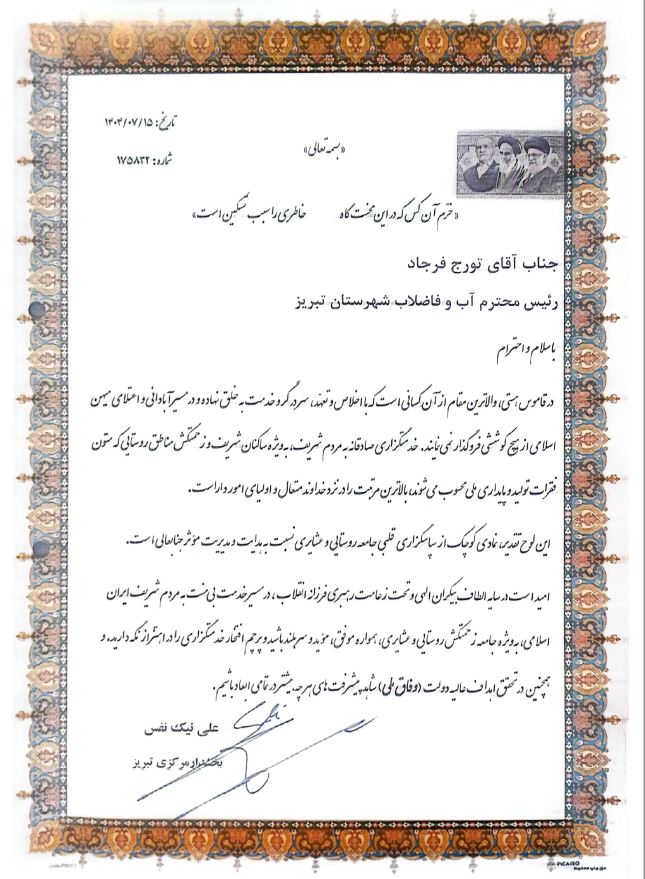 تاریخ: ۱۴۰۴/۰۷/۱۵
شماره: ۱۷۵۸۳۲
«بسمه تعالی»
«خرم آن کس که در این محنت گاه خاطری را سبب تسکین است»
جناب آقای تورج فرجاد
رئیس محترم آب و فاضلاب شهرستان تبریز
باسلام و احترام
در قاموس هستی، والاترین مقام از آن کسانی است که با اخلاص و تعهد، سر در گرو خدمت به خلق نهاده و در مسیر آبادانی و اعتلای میهن
اسلامی از هیچ کوششی فروگذار نمی نمایند. خدمتگزاری صادقانه به مردم شریف، به ویژه ساکنان شریف و زحمتکش مناطق روستایی که ستون
فقرات تولید و پایداری ملی محسوب می شوند، بالاترین مرتبت را در نزد خداوند متعال و اولیای امور داراست.
این لوح تقدیر، نمادی کوچک از سپاسگزاری قلبی جامعه روستایی و عشایری نسبت به هدایت و مدیریت مؤثر جنابعالی است.
امید است در سایه الطاف بیکران الهی و تحت زعامت رهبری فرزانه انقلاب، در مسیر خدمت بی منت به مردم شریف ایران
اسلامی، به ویژه جامعه زحمتکش روستایی و عشایری، همواره موفق، مؤید و سربلند باشید و پرچم افتخار خدمتگزاری را در اهتزاز نگه دارید. و
همچنین در تحقق اهداف عالیه دولت (وفاق ملی) شاهد پیشرفت های هرچه بیشتر در تمامی ابعاد باشیم.
علی نیک نفس
بخشدار مرکزی تبریز
PICASSO